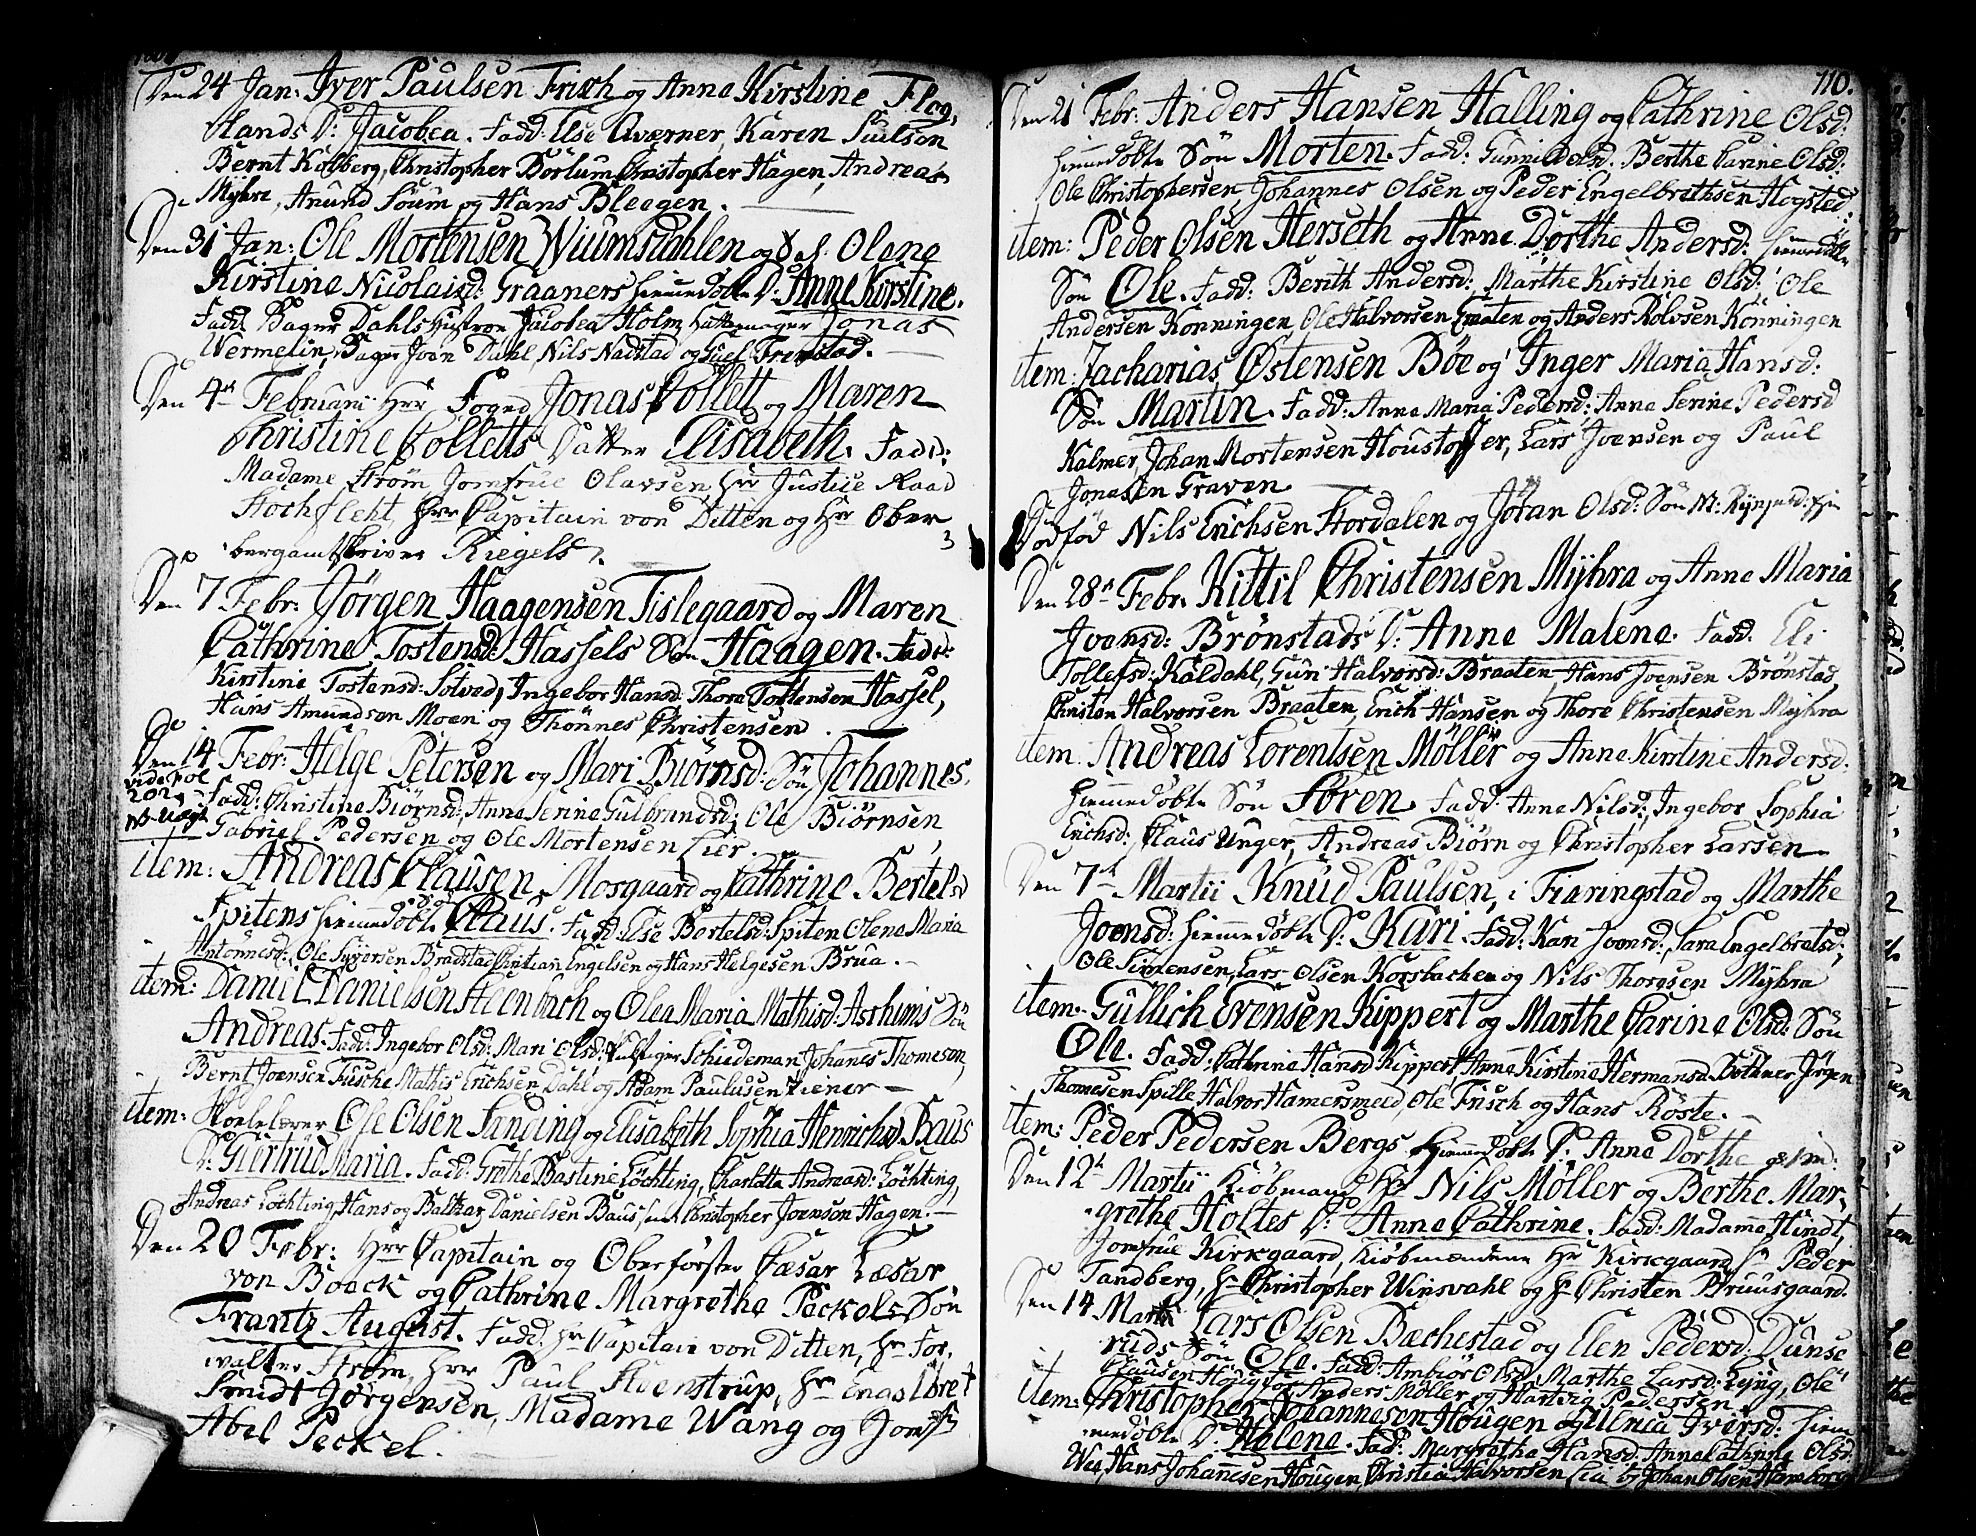 Den 24 Jan: Iver Paulsen Frisch og Anne Kirstine Flog
stands D: Jacobea. Fadd: Else Averner, Karen Paulson
Bernt Kolberg, Christopher Borlum Christopher Hagen, Andreas
Myhre, Anund Soum og Hans Bleegen.
Den 31 Jan: Ole Mortensen Wiumsdahlen og Olene
Kirstine Nicolaisd: Graaners hiemmedøbte D: Anne Kirstine.
Fadd Bager Dahls Hustroe Jacobea Holm Jonas
Wermelin, Bager Joen Dahl Nils Nadstad og Frenstad.
Den 4de Februarii Herr Foged Jonas Collett og Maren
Christine Colletts Datter Elisabeth. Fadd:
Madame Strøm Jomfrue Olavsen, Hr Justice Raad
Stockfleht, Herr Capitain von Ditten og Hr Ober
bergamtskriver Riegels.
Den 7 Febr: Jørgen Haagensen Tislegaard og Maren
Cathrine Tostensd: Hassels Søn Haagen. Fadd:
Kirstine Tostensd: Solved, Ingebor Hansd: Thore Tostensen Hassel,
Hans Amundsen Moen og Thønnes Christensen.
Den 14 Febr: Helge Petersen og Mari Biørnsd: Søn Johannes.
vide fol
202
Fadd: Christine Biørnsd: Anne Serine Gulbrandsd: Ole Biørnsen
Gabriel Pedersen og Ole Mortensen Lier.
item: Andreas Clausen Mosgaard og Cathrine Bertelsd
Spitens hiemmedøbt Claus. Fadd: Else Bertelsd: Spiten Olene Maria
Antonnesd: Ole Syversen Bradstad Christian Engelsen og Hans Helgesen Brua.
item: Daniel Danielsen Steenbach og Olea Maria Mathisd: Aschims Søn
Andreas. Fadd: Ingebor Olsd: Mari Olsd: Schiedeman Johannes Thomesen,
Bernt Joensen Fusche Mathis Erichsen Dahl og Adam Paulusen Kiener
item: Skolelærer Ole Olsen Sanding og Elisabeth Sophia Henrichsd. Baus
D: Giertrud Maria. Fadd: Grethe Bastine Løchting, Charlotte Andreasd: Løchting,
Andreas Løchting, Hans og Baltzar Danielsen Baus, samt Christopher Joensen Hagen.
Den 20 Febr: Herr Capitain og Oberførster Cæsar Læsar
von Boeck og Cathrine Margrethe Peckels Søn
Frantz August. Fadd. Hr Capitain von Ditten, Hr For
walter Strøm, Herr Paul Steenstrup, Hr Engelbret
Smidt Jørgensen, Madame Wang og Jomfr
Abel Peckel.
110.
Den 21 Febr: Anders Hansen Halling og Cathrine Olsd:
hiemmedøbte Søn Morten. Fadd: Gunnild Berthe Carine Olsd:
Ole Christophersen, Johannes Olsen og Peder Engelbrethsen Hogsted
item: Peder Olsen Herseth og Anne Dorthe Andersd: hiemmedøbte
Søn Ole. Fadd: Berith Andersd: Marthe Kirstine Olsd: Ole
Andersen Konningen Ole Halvorsen Enaten og Anders Rolvsen Konningen
item: Zacharias Østensen Bøe og Inger Maria Hansd:
Søn Martin. Fadd: Anne Maria Pedersd: Anne Serine Pedersd
Kalmer, Johan Mortensen Houstoffer, Lars Joensen og Paul
Jonasen Graven
Dødfød Nils Erichsen Stordalen og Jøran Olsd: Søn
Den 28de Febr. Kittil Christensen Myhra og Anne Maria
Joensd: Brønstads D: Anne Malene. Fadd. Eli
Tollefsd: Kaldahl, Guri Halvorsd: Braaten Hans Joensen Brønstad
Christen Halvorsen Braaten, Erich Hansen og Thore Christensen Myhra
item: Andreas Lorentsen Møller og Anne Kirstine Andersd:
hiemmedøbte Søn Søren. Fadd. Anne Nilsd: Ingebor Sophia
Erichsd: Claus Unger, Andreas Biørn og Christopher Larsen
Den 7de Martii Knud Paulsen, i Fieringstad og Marthe
Joensd: hiemmedøbte D: Kari. Fadd: Kari Joensd: Sara Engelbretsd;
Ole Simensen, Lars Olsen Korsbachen og Nils Thorgsen Myhra
item: Gullich Evensen Kippert og Marthe Carine Olsd: Søn
Ole. Fadd: Cathrine Hansd Kippert Anne Kirstine Hermansd. Bøthner Jørgen
Thomesen Spille Halvor Hamersmed Ole Fusch og Hans Røste.
item: Peder Pedersen Bergs hiemmedøbte D: Anne Dorthe
Den 12te Martii Kiøbmand Hr Nils Møller og Berthe Mar
grethe Holtes D: Anne Cathrine. Fadd: Madame Hindt,
Jomfrue Kirkgaard, Kiøbmændene Hr Kirkgaard, Hr Peder
Tandberg, Hr Christopher Winsvahl og Hr Christen Bruusgaard.
Den 14 Martii Lars Olsen Bæchestad og Elen Pedersd: Dunse
ruds Søn Ole. Fadd: Ambiør Olsd Marthe Larsd: Lyng, Ole
Clausen Hougen Anders Møller og Hartvig Pedersen.
item: Christopher Johannesen Hougen og Ulrica Iversd: hiem
medøbte D: Helene. Fad: Margrethe Hansd: Anne Cathrine Olsd:
Wee, Hans Johannesen Hougen, Christen Halvorsen Lia og Johan Olsen Hamborg